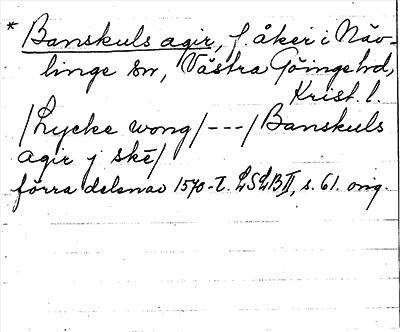 * Banskuls agir, f. åker i Näv-
linge sn, Västra Göinge hd,
Krist. l.
/Lycke wong/ --- / Banskuls
agir j skē/
förra delen av 1500-t. LSLB II, s. 61. orig.